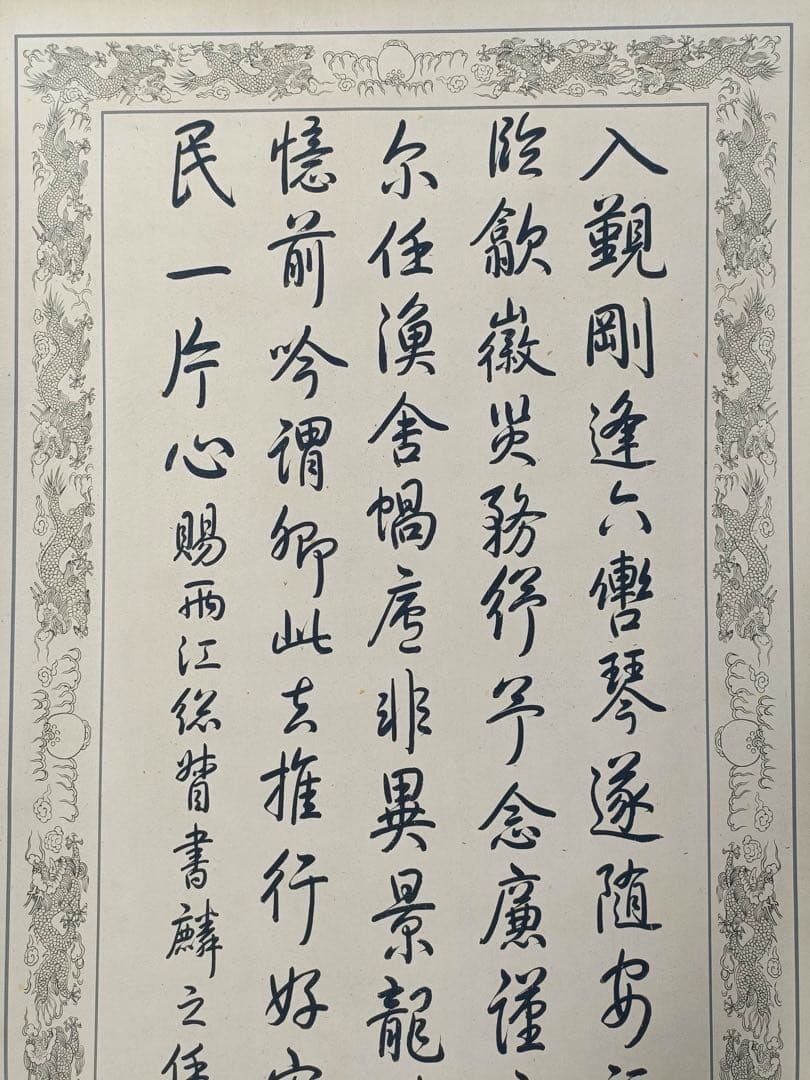 入覲剛逢六轡琴遂随安
臨歙徽災務紓予念廉謹
尔任漁舍蝸廬非異景龍
憶前吟謂卿此去推行好
民一片心賜兩江總督書麟之任